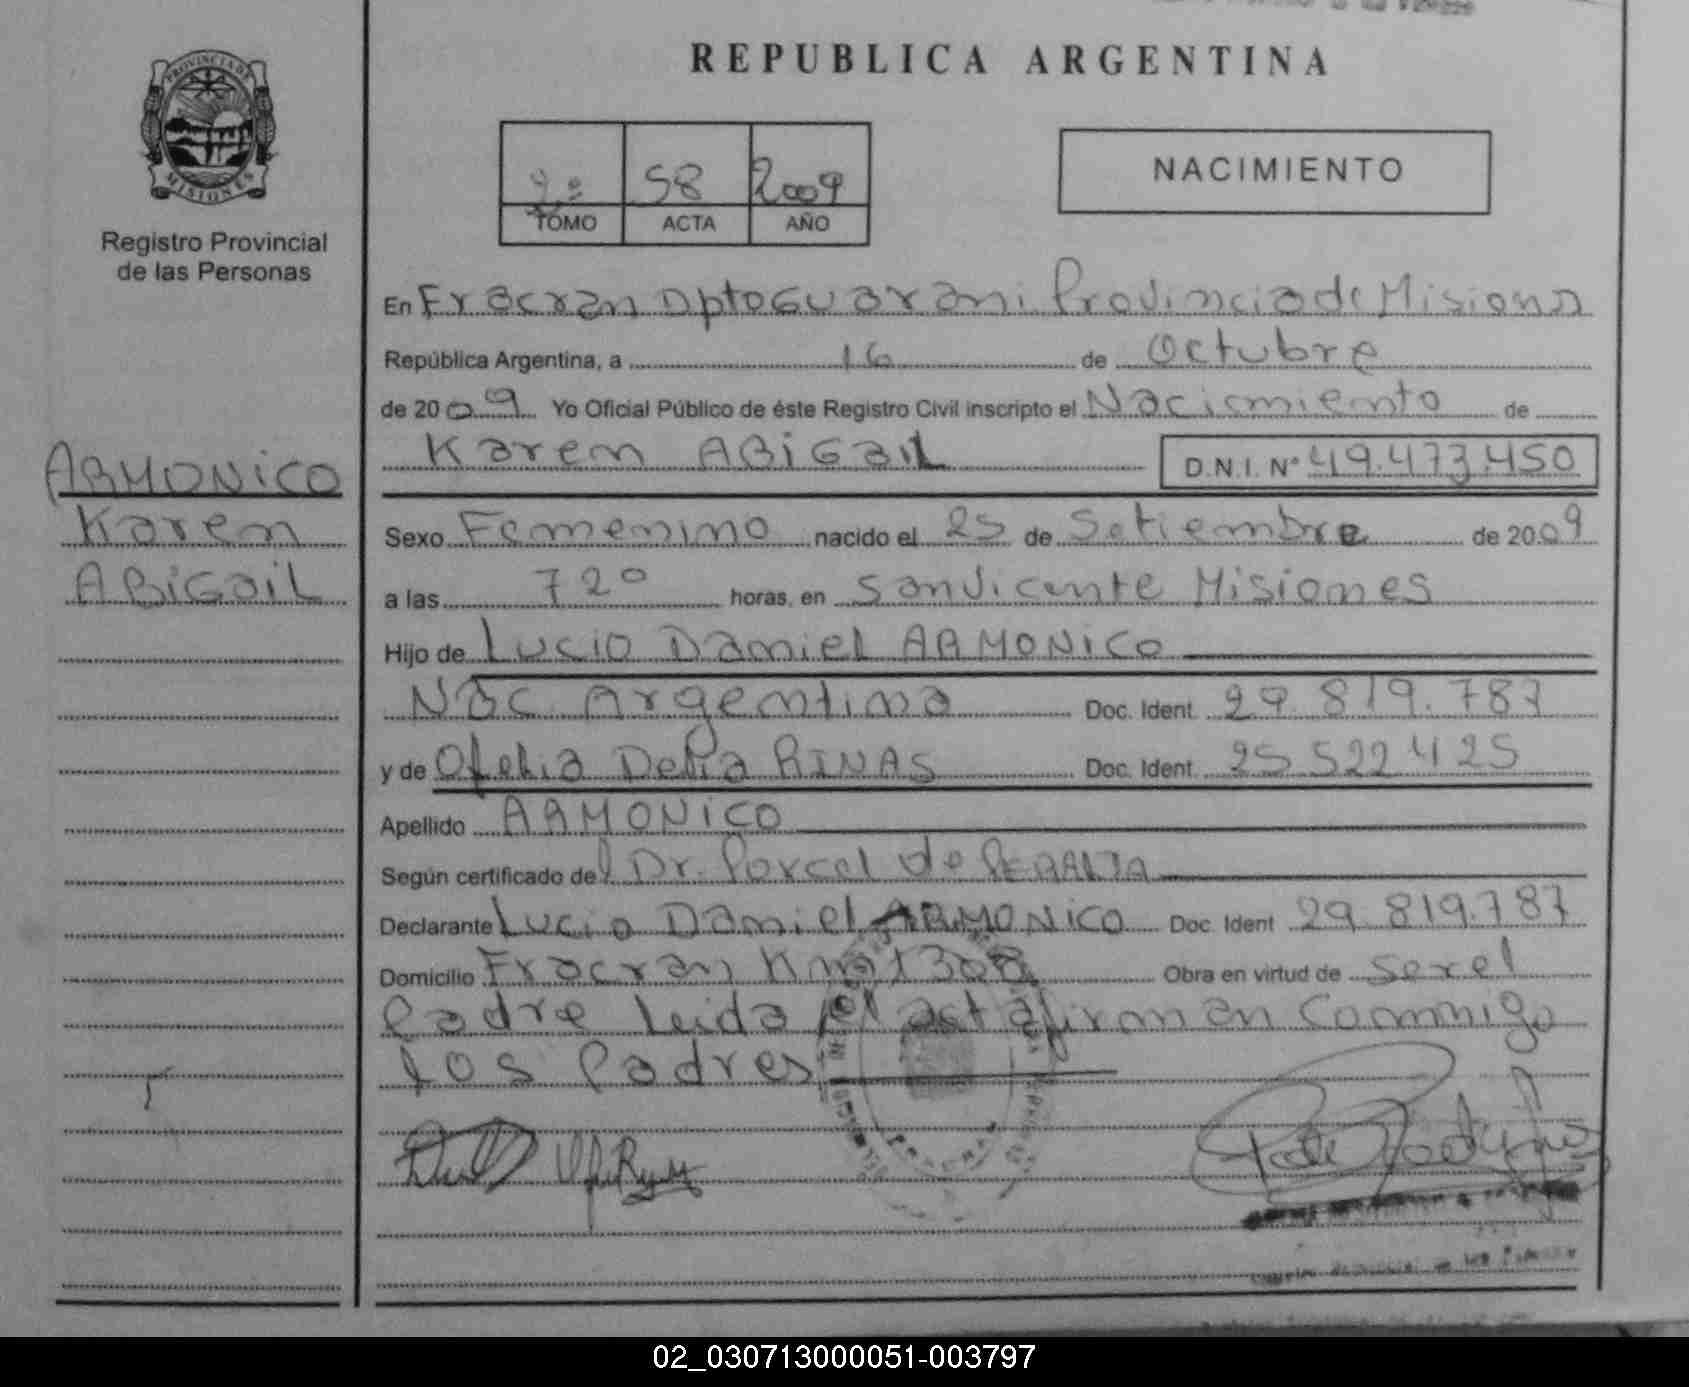 REPUBLICA ARGENTINA
PROVINCIA DE
MISIONES
Registro Provincial
de las Personas
58 2009
TOMO ACTA AÑO
NACIMIENTO
En Fracran Dpto Guarani Provincia de Misiones
República Argentina, a 16 de Octubre
de 2009 Yo Oficial Público de éste Registro Civil inscripto el Nacimiento de
Karem ABiGaiL D.N.I. N° 49.473.450
ARMONiCO
Karem
ABiGaiL
Sexo Femenino nacido el 25 de Setiembre de 2009
a las 7 20 horas, en San Vicente Misiones
Hijo de Lucio Daniel ARMONiCO
Nac Argentina Doc. Ident 29.819.787
y de Ofelia Delia RINAS Doc. Ident 25 522 425
Apellido ARMONiCO
Según certificado del Dr. Porcel de PERALTA
Declarante Lucio Daniel ARMONiCO Doc. Ident 29.819.787
Domicilio Fracran Km 1308 Obra en virtud de Ser el
Padre Leida el acta firman Conmigo
los Padres
02_030713000051-003797